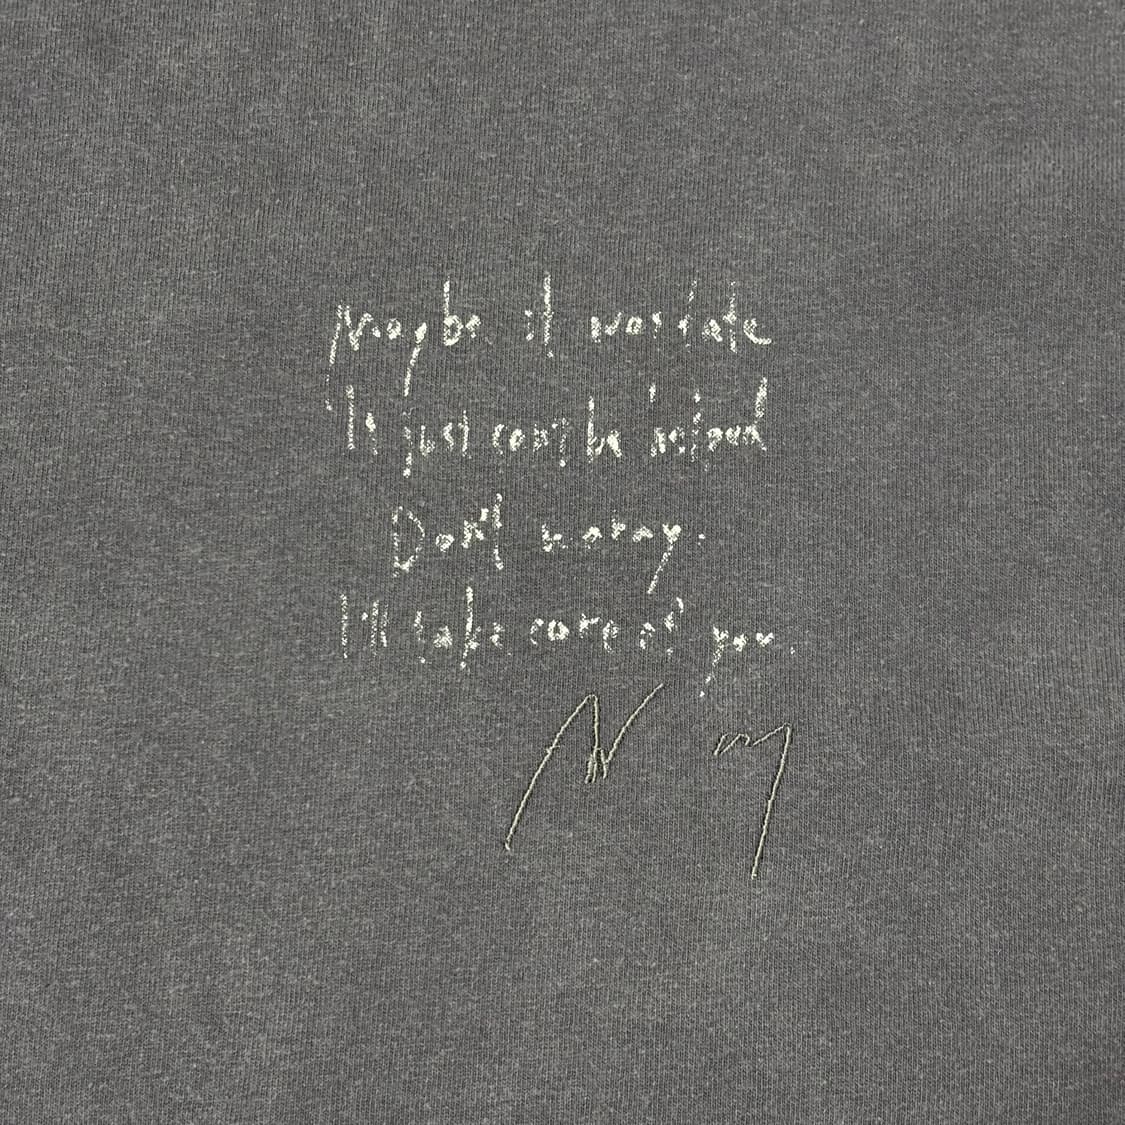 Maybe it was fate
It just can't be helped
Don't worry.
I'll take care of you.